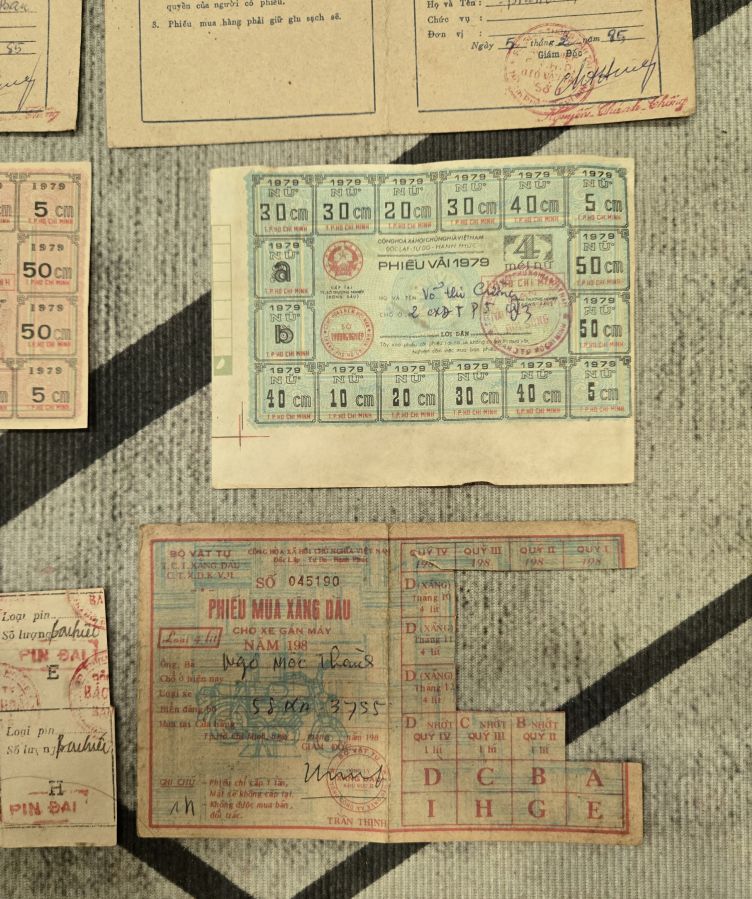 quyền của người có phiếu.
3. Phiếu mua hàng phải giữ gìn sạch sẽ.
Họ và Tên :
Chức vụ :
Đơn vị :
Ngày 5 tháng 2 năm 85
Giám Đốc
85
1979
5 cm
T.P. HỒ CHÍ MINH
50 cm
1979
50 cm
1979
5 cm
T.P. HỒ CHÍ MINH
1979 1979 1979 1979 1979 1979
NỮ NỮ NỮ NỮ NỮ NỮ
30 cm 30 cm 20 cm 30 cm 40 cm 5 cm
T.P. HỒ CHÍ MINH
1979
NỮ
a
T.P. HỒ CHÍ MINH
1979
NỮ
b
T.P. HỒ CHÍ MINH
CỘNG HÒA XÃ HỘI CHỦ NGHĨA VIỆT NAM
ĐỘC LẬP - TỰ DO - HẠNH PHÚC
PHIẾU VẢI 1979
4
mét NỮ
HỌ VÀ TÊN Võ thị
CHỖ Ở
SỞ
THƯƠNG NGHIỆP
LỜI DẶN
1979
NỮ
50 cm
T.P. HỒ CHÍ MINH
1979
NỮ
50 cm
T.P. HỒ CHÍ MINH
1979 1979 1979 1979 1979 1979
NỮ NỮ NỮ NỮ NỮ NỮ
40 cm 10 cm 20 cm 30 cm 40 cm 5 cm
T.P. HỒ CHÍ MINH
BỘ VẬT TƯ
T.C.T. XĂNG DẦU
C.T.X.D.K.V.II.
CỘNG HÒA XÃ HỘI CHỦ NGHĨA VIỆT NAM
Độc Lập - Tự Do - Hạnh Phúc
SỐ 045190
PHIẾU MUA XĂNG DẦU
CHO XE GẮN MÁY
Loại 4 lít
NĂM 198
Ông, Bà Ngô Mộc Thành
Chỗ ở hiện nay
Loại xe
Biển đăng bộ 3755
Mua tại Cửa hàng
T.P. Hồ Chí Minh, ngày tháng năm 198
GIÁM ĐỐC
GHI CHÚ : - Phiếu chỉ cấp 1 lần,
Mất sẽ không cấp lại.
Không được mua bán,
đổi trác.
TRẦN THỊNH
QUÝ IV QUÝ III QUÝ II QUÝ I
198 198 198 198
D (XĂNG)
Tháng 10
4 lít
D (XĂNG)
4 lít
D (XĂNG)
Tháng 12
4 lít
D NHỚT C NHỚT B NHỚT
QUÝ IV QUÝ III QUÝ II
1 lít 1 lít 1 lít
D C B A
I H G E
Loại pin
Số lượng
PIN ĐẠI
E
Loại pin
Số lượng
H
PIN ĐẠI